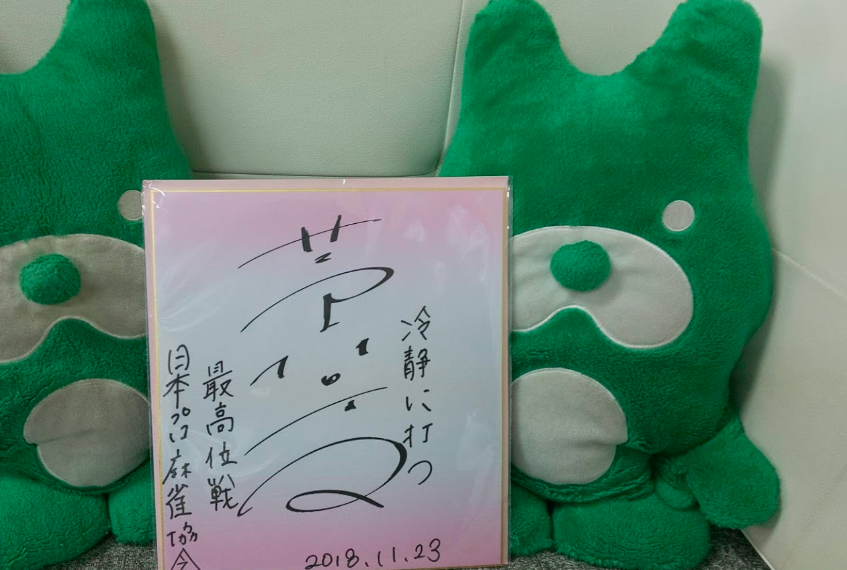 冷静に打つ
最高位戦
日本プロ麻雀協会
2018.11.23